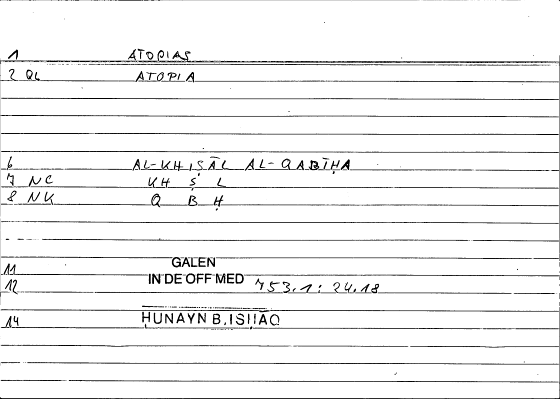 1 ATOPIAS
2 QL ATOPIA
6 AL-KHIṢĀL AL-QABĪḤA
7 NC KH Ṣ L
8 NK Q B Ḥ
11 GALEN
12 IN DE OFF MED 753.1: 24.18
14 ḤUNAYN B. ISḤĀQ